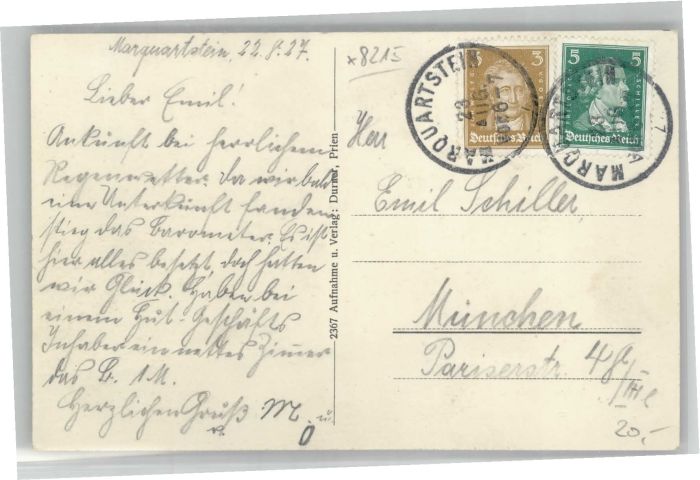 Marquartstein, 22.8.27.
Lieber Emil!
Ankunft bei herrlichem
Regenwetter. Da wir bald
eine Unterkunft fanden
stieg das Barometer. Es ist
hier alles besetzt, doch hatten
wir Glück. Haben bei
einem Hut-Geschäfts
Inhaber ein nettes Zimmer
das B. 1 M.
Herzlichen Gruß M. u.
2367 Aufnahme u. Verlag: Durrer, Prien
x8215
3
Deutsches Reich
5
Deutsches Reich
MARQUARTSTEIN
23 AUG
MARQUARTSTEIN
Herr
Emil Schiller,
München
Pariserstr. 48/
20,-